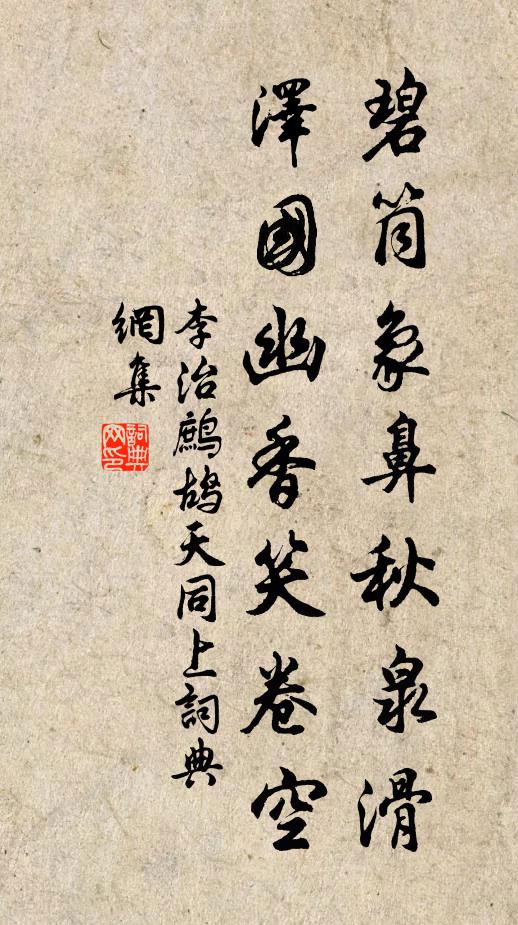 碧筒象鼻秋泉滑
澤國幽香笑卷空
李治鷓鴣天同上詞典
網集
詞典網印